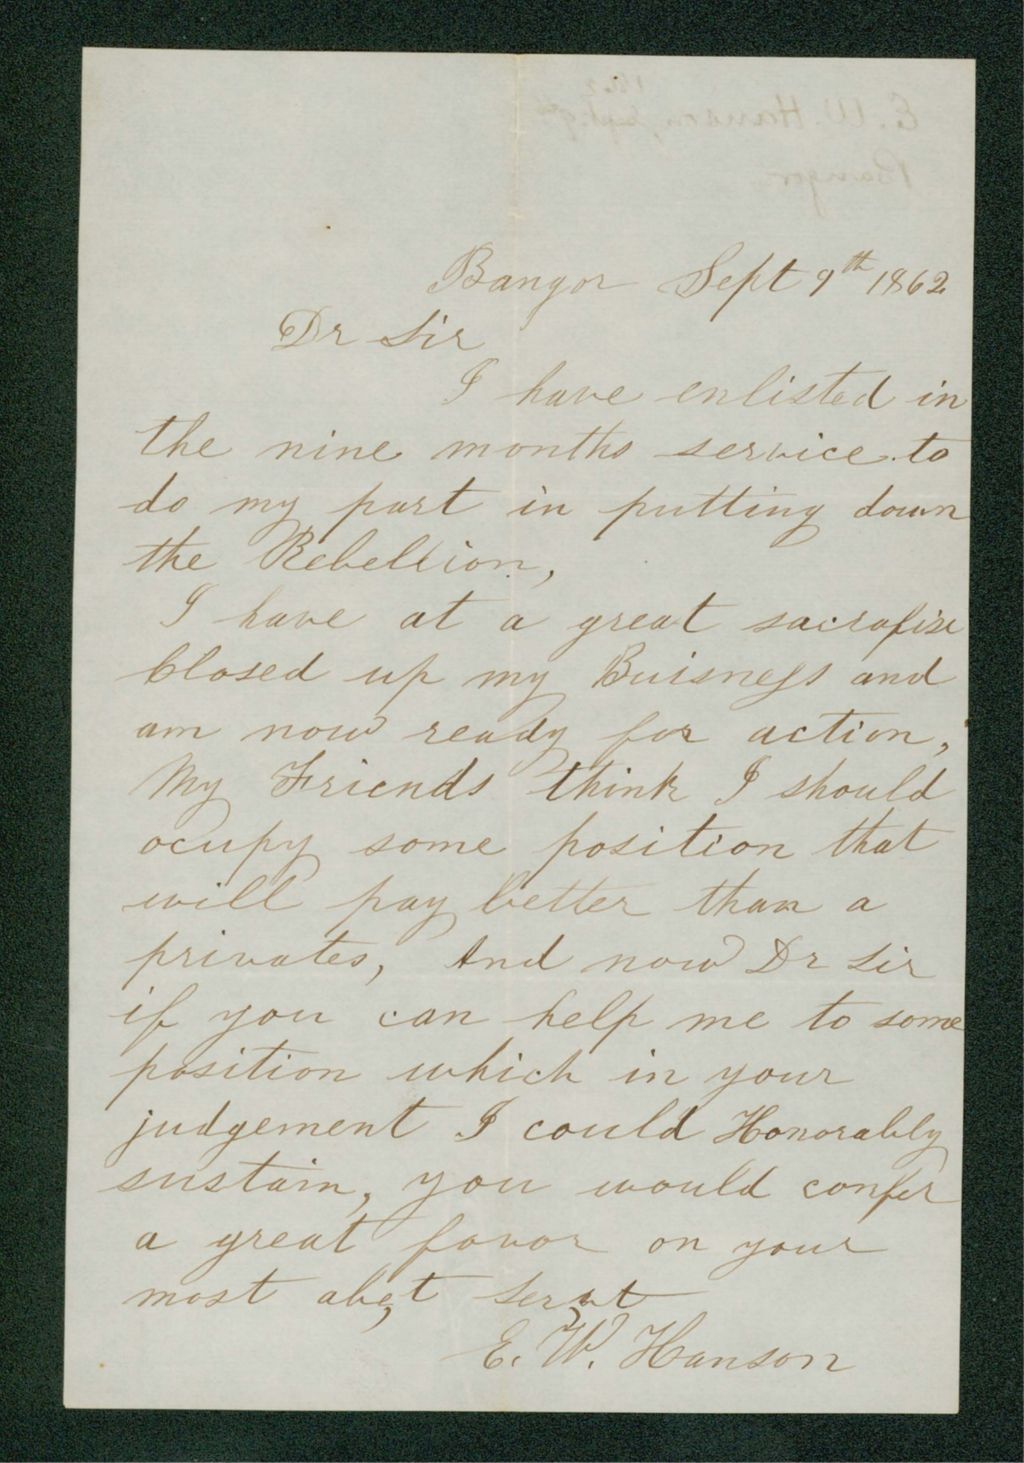 Bangor Sept 9th 1862
Dr Sir
I have enlisted in
the nine months service to
do my part in putting down
the Rebellion,
I have at a great sacrafise
closed up my Buisness and
am now ready for action,
My Friends think I should
ocupy some position that
will pay better than a
privates, And now Dr Sir
if you can help me to some
position which in your
judgement I could Honorably
sustain, you would confer
a great favor on your
most obe,t Serv,t
E. W. Hanson